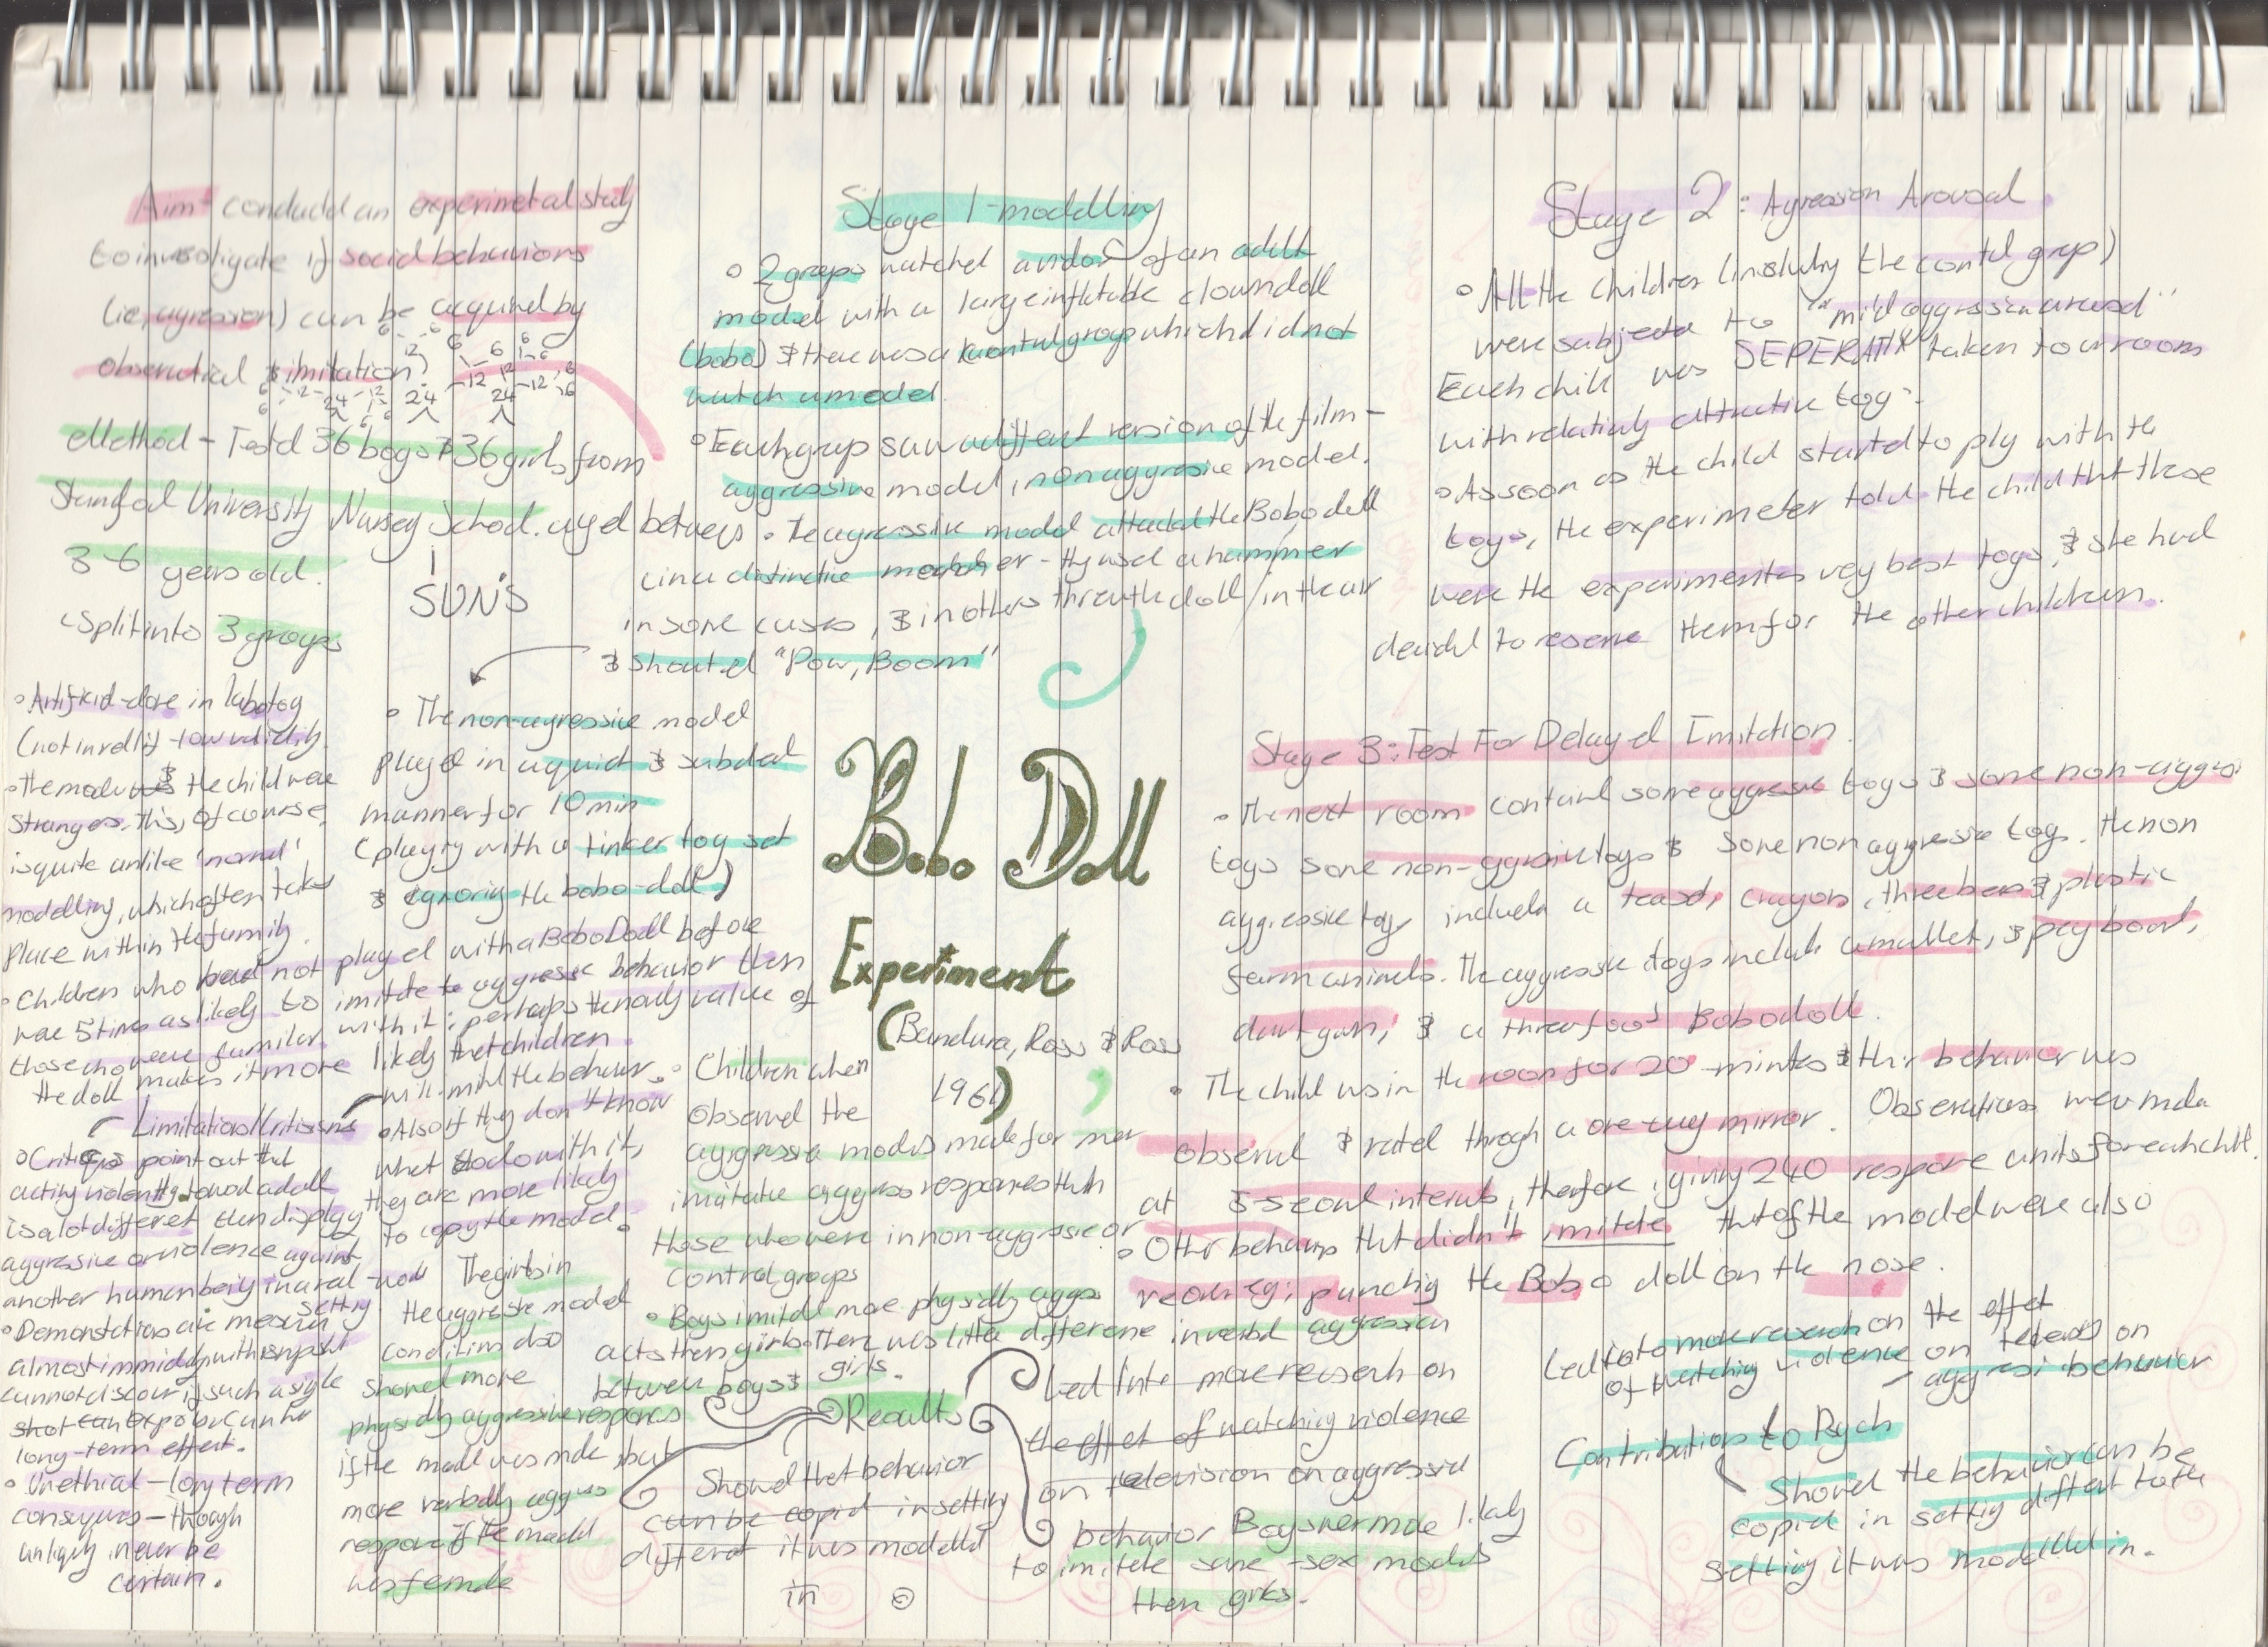 Aim- conductd an experimetal study
to investigate if social behaviors
(ie, agression) can be acquired by
observatial & imitation.
6 6 6 6 6
12 6 12 6
12 12 12 12 6
24 24 24
Method - Testd 36 boys & 36 girls from
Stanford University Nursey School. aged betweeys
3-6 years old.
SUN'S
Split into 3 groups
Stage 1-modelling
◦ 2 groups watched a video of an adult
model with a large inflatable clown doll
(bobo) & there was a kontrol group which did not
watch a model.
◦ Each group saw a diffent version of the film -
aggressive model, non aggresive model.
• The agressive model attacked the Bobo doll
in a distinctive manner - they used a hammer
in some cases, & in others threw the doll in the air
& shouted "Pow, Boom"
◦ The non-agressive model
played in a quiet & subdued
manner for 10 min
(playing with a tinker toy set
& ignoring the bobo-doll)
Stage 2: Agression Arousal
◦ All the children (including the contol group)
were subjected to "mild aggression arousal"
Each child was SEPERATLY taken to a room
with relativly attractive toys.
◦ As soon as the child started to play with the
toys, the experimeter told the child that these
were the experimenters very best toys, & she had
decided to reserve them for the other children.
Bobo Doll
Experiment
(Bandura, Ross & Ross
1961)
Stage 3: Test For Delayed Imitation.
• The next room contained some aggressive toys & some non-aggres
toys some non-aggresive toys & some non aggressive toys. The non
aggressive toys included a teaset, crayons, three bears & plastic
farm animals. The aggressive toys include a mallet, & peg board,
dart guns, & a three foot Bobo doll.
• The child was in the room for 20 minutes & thir behavior was
observed & rated through a one-way mirror. Observations were mda
at 5-second intervals, therefore, giving 240 respone units for each child.
◦ Other behaviors that didn't imitate that of the model were also
recorded eg; punching the Bobo doll on the nose.
◦ Artificial-done in laboratory
(not in real life - low validity
◦ the model & the child were
strangers. This, of course,
is quite unlike 'normal'
modelling, which often takes
place within the family.
◦ Children who had not played with a Bobo Doll before
were 5 times as likely to imitate to aggressive behavior then
those who were familiar with it; perhaps the novelty value of
the doll makes it more likely that children
will imitate the behavior.
Limitations/Critisisms
◦ Also if they don't know
what to do with it,
they are more likely
to copy the model.
◦ Critiques point out that
acting violently toward a doll
is a lot different then display
aggressive or violence against
another human being in a real-world
setting
◦ Demonstrations are measured
almost immiditly with snapshot
cannot discover if such a single
shot exposure can have
long-term effect.
◦ Unethical - long term
consequences - though
unlikely never be
certain.
◦ Children when
observed the
aggressive models made far more
imitative aggress responses than
those who were in non-aggressive or
control groups
◦ The girls in
the aggressive model
condition also
showed more
physically aggressive responces
if the model was male, but
more verbally aggress
respone if the model
was female
◦ Boys imitated more physically aggress
acts then girls. There was little difference in verbal aggression
between boys & girls.
Results
Showed that behavior
can be copied in setting
different it was modelled
in
Led into more reserch on
the effect of watching violence
on television on aggressive
behavior Boys wer more likely
to imitate same-sex models
then girls.
Led to more reserch on the effet
of watching violence on television on
aggressi behavior
Contributions to Psych
Showed the behavior can be
copied in setting diffent to the
setting it was modelled in.